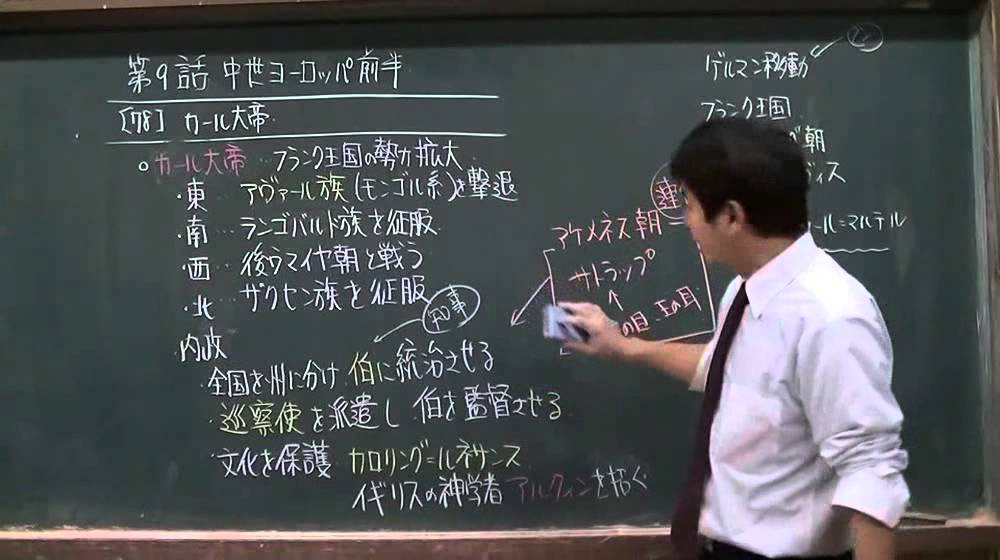 第9話 中世ヨーロッパ前半
[78] カール大帝
○カール大帝…フランク王国の勢力拡大
・東…アヴァール族(モンゴル系)を撃退
・南…ランゴバルド族を征服
・西…後ウマイヤ朝と戦う
・北…ザクセン族を征服
知事
内政
全国を州に分け 伯に統治させる
巡察使を派遣し 伯を監督させる
文化を保護 カロリング=ルネサンス
イギリスの神学者アルクィンを招ぐ
アケメネス朝
サトラップ
の目 王の耳
ゲルマン移動
フランク王国
朝
ール=マルテル